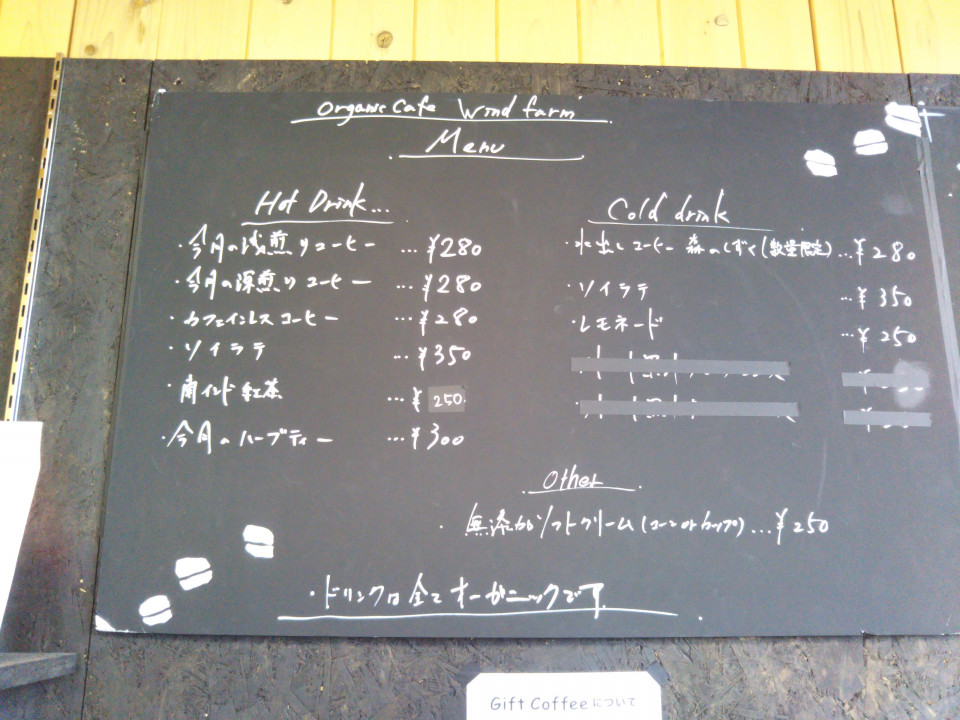 Organic Cafe Wind farm
Menu
Hot Drink...
・今月の浅煎りコーヒー ...¥280
・今月の深煎りコーヒー ...¥280
・カフェインレスコーヒー ...¥280
・ソイラテ ...¥350
・南インド紅茶 ...¥250
・今月のハーブティー ...¥300
Cold drink
・水出しコーヒー 森のしずく(数量限定)...¥280
・ソイラテ ...¥350
・レモネード ...¥250
Other
・無添加ソフトクリーム(コーンorカップ)...¥250
・ドリンクは全てオーガニックです。
Gift Coffeeについて